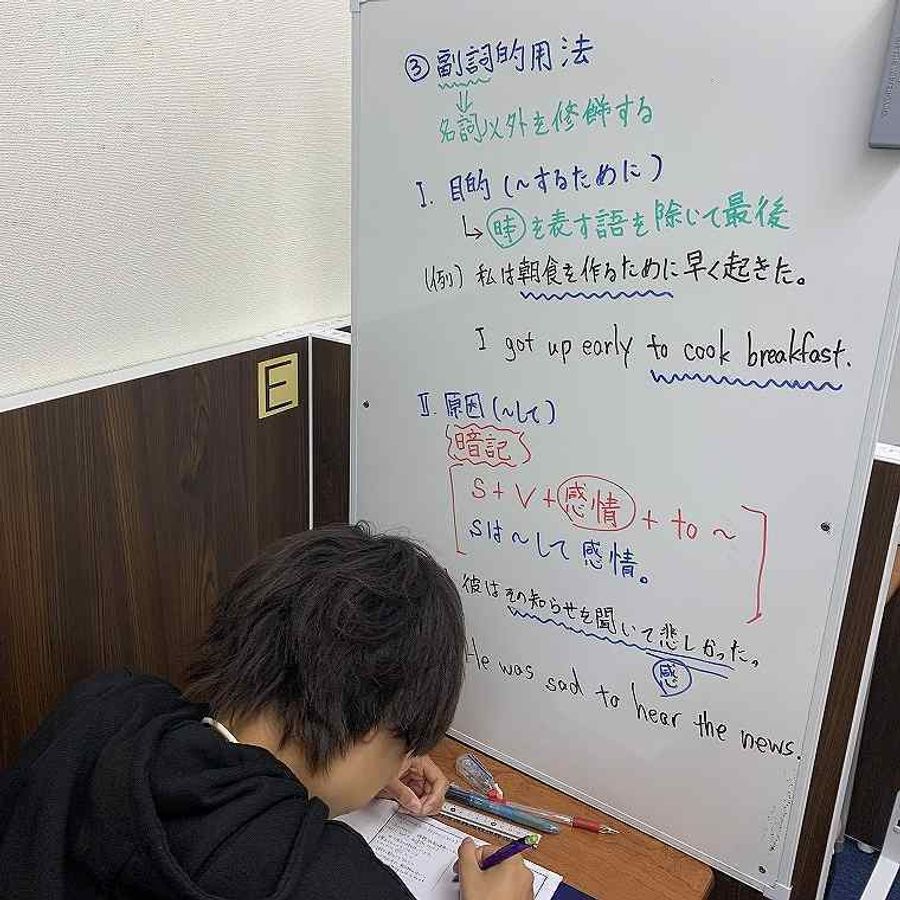 ③ 副詞的用法
⇓
名詞以外を修飾する
Ⅰ. 目的 (~するために)
↳ 時を表す語を除いて最後
(例) 私は朝食を作るために早く起きた。
I got up early to cook breakfast.
E
Ⅱ. 原因 (~して)
暗記
S + V + 感情 + to ~
Sは~して感情。
彼はその知らせを聞いて悲しかった。
感
He was sad to hear the news.